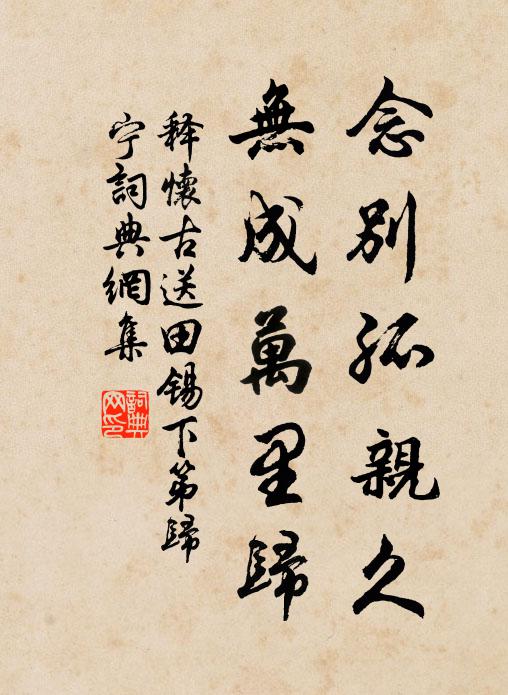 念別孤親久
無成萬里歸
释懷古送田錫下第歸
宁詞典網集
詞典
网印